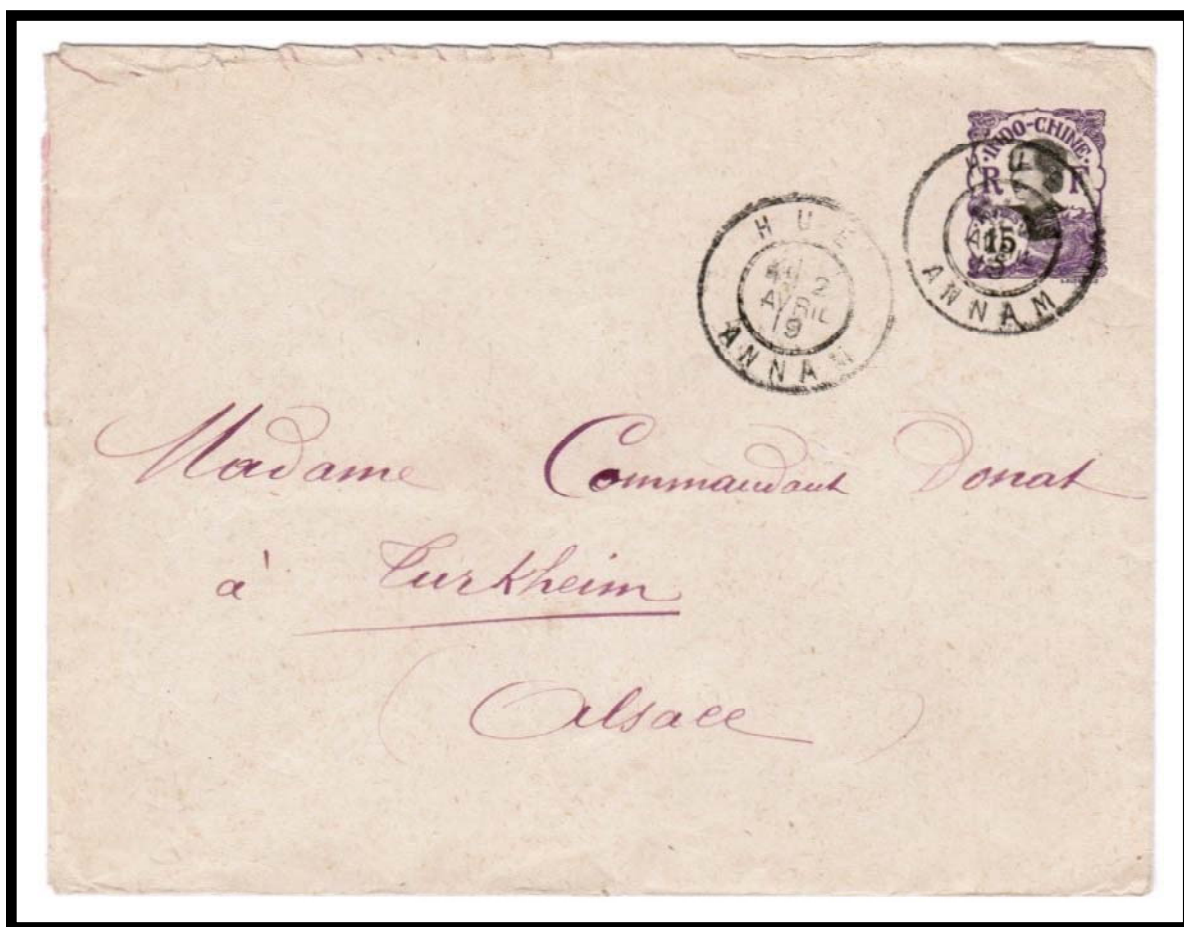 INDO-CHINE
R F
15
ANNAM
HUE
2
AVRIL
19
ANNAM
Madame Commandant Donat
à Turkheim
(Alsace)